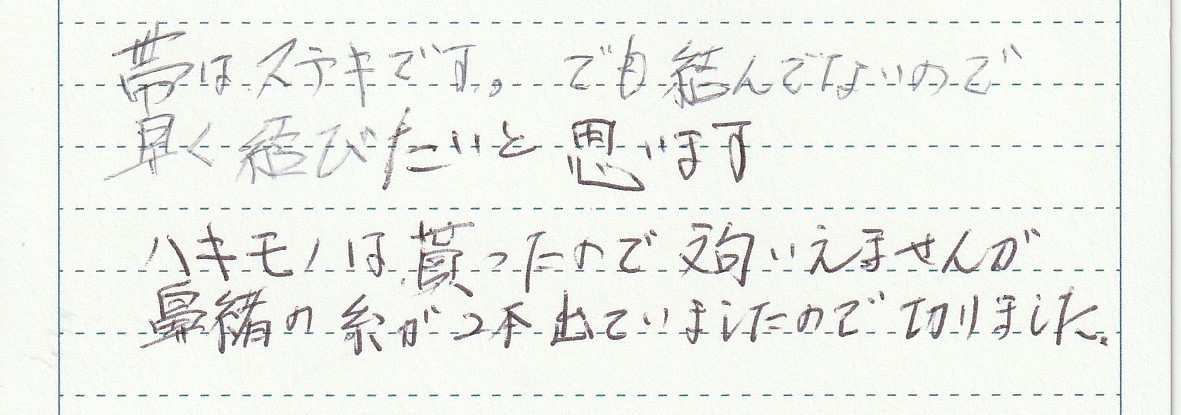 帯はステキです。でも結んでないので
早く結びたいと思います
ハキモノは貰ったので文句いえませんが
鼻緒の糸が2本出ていましたので切りました。